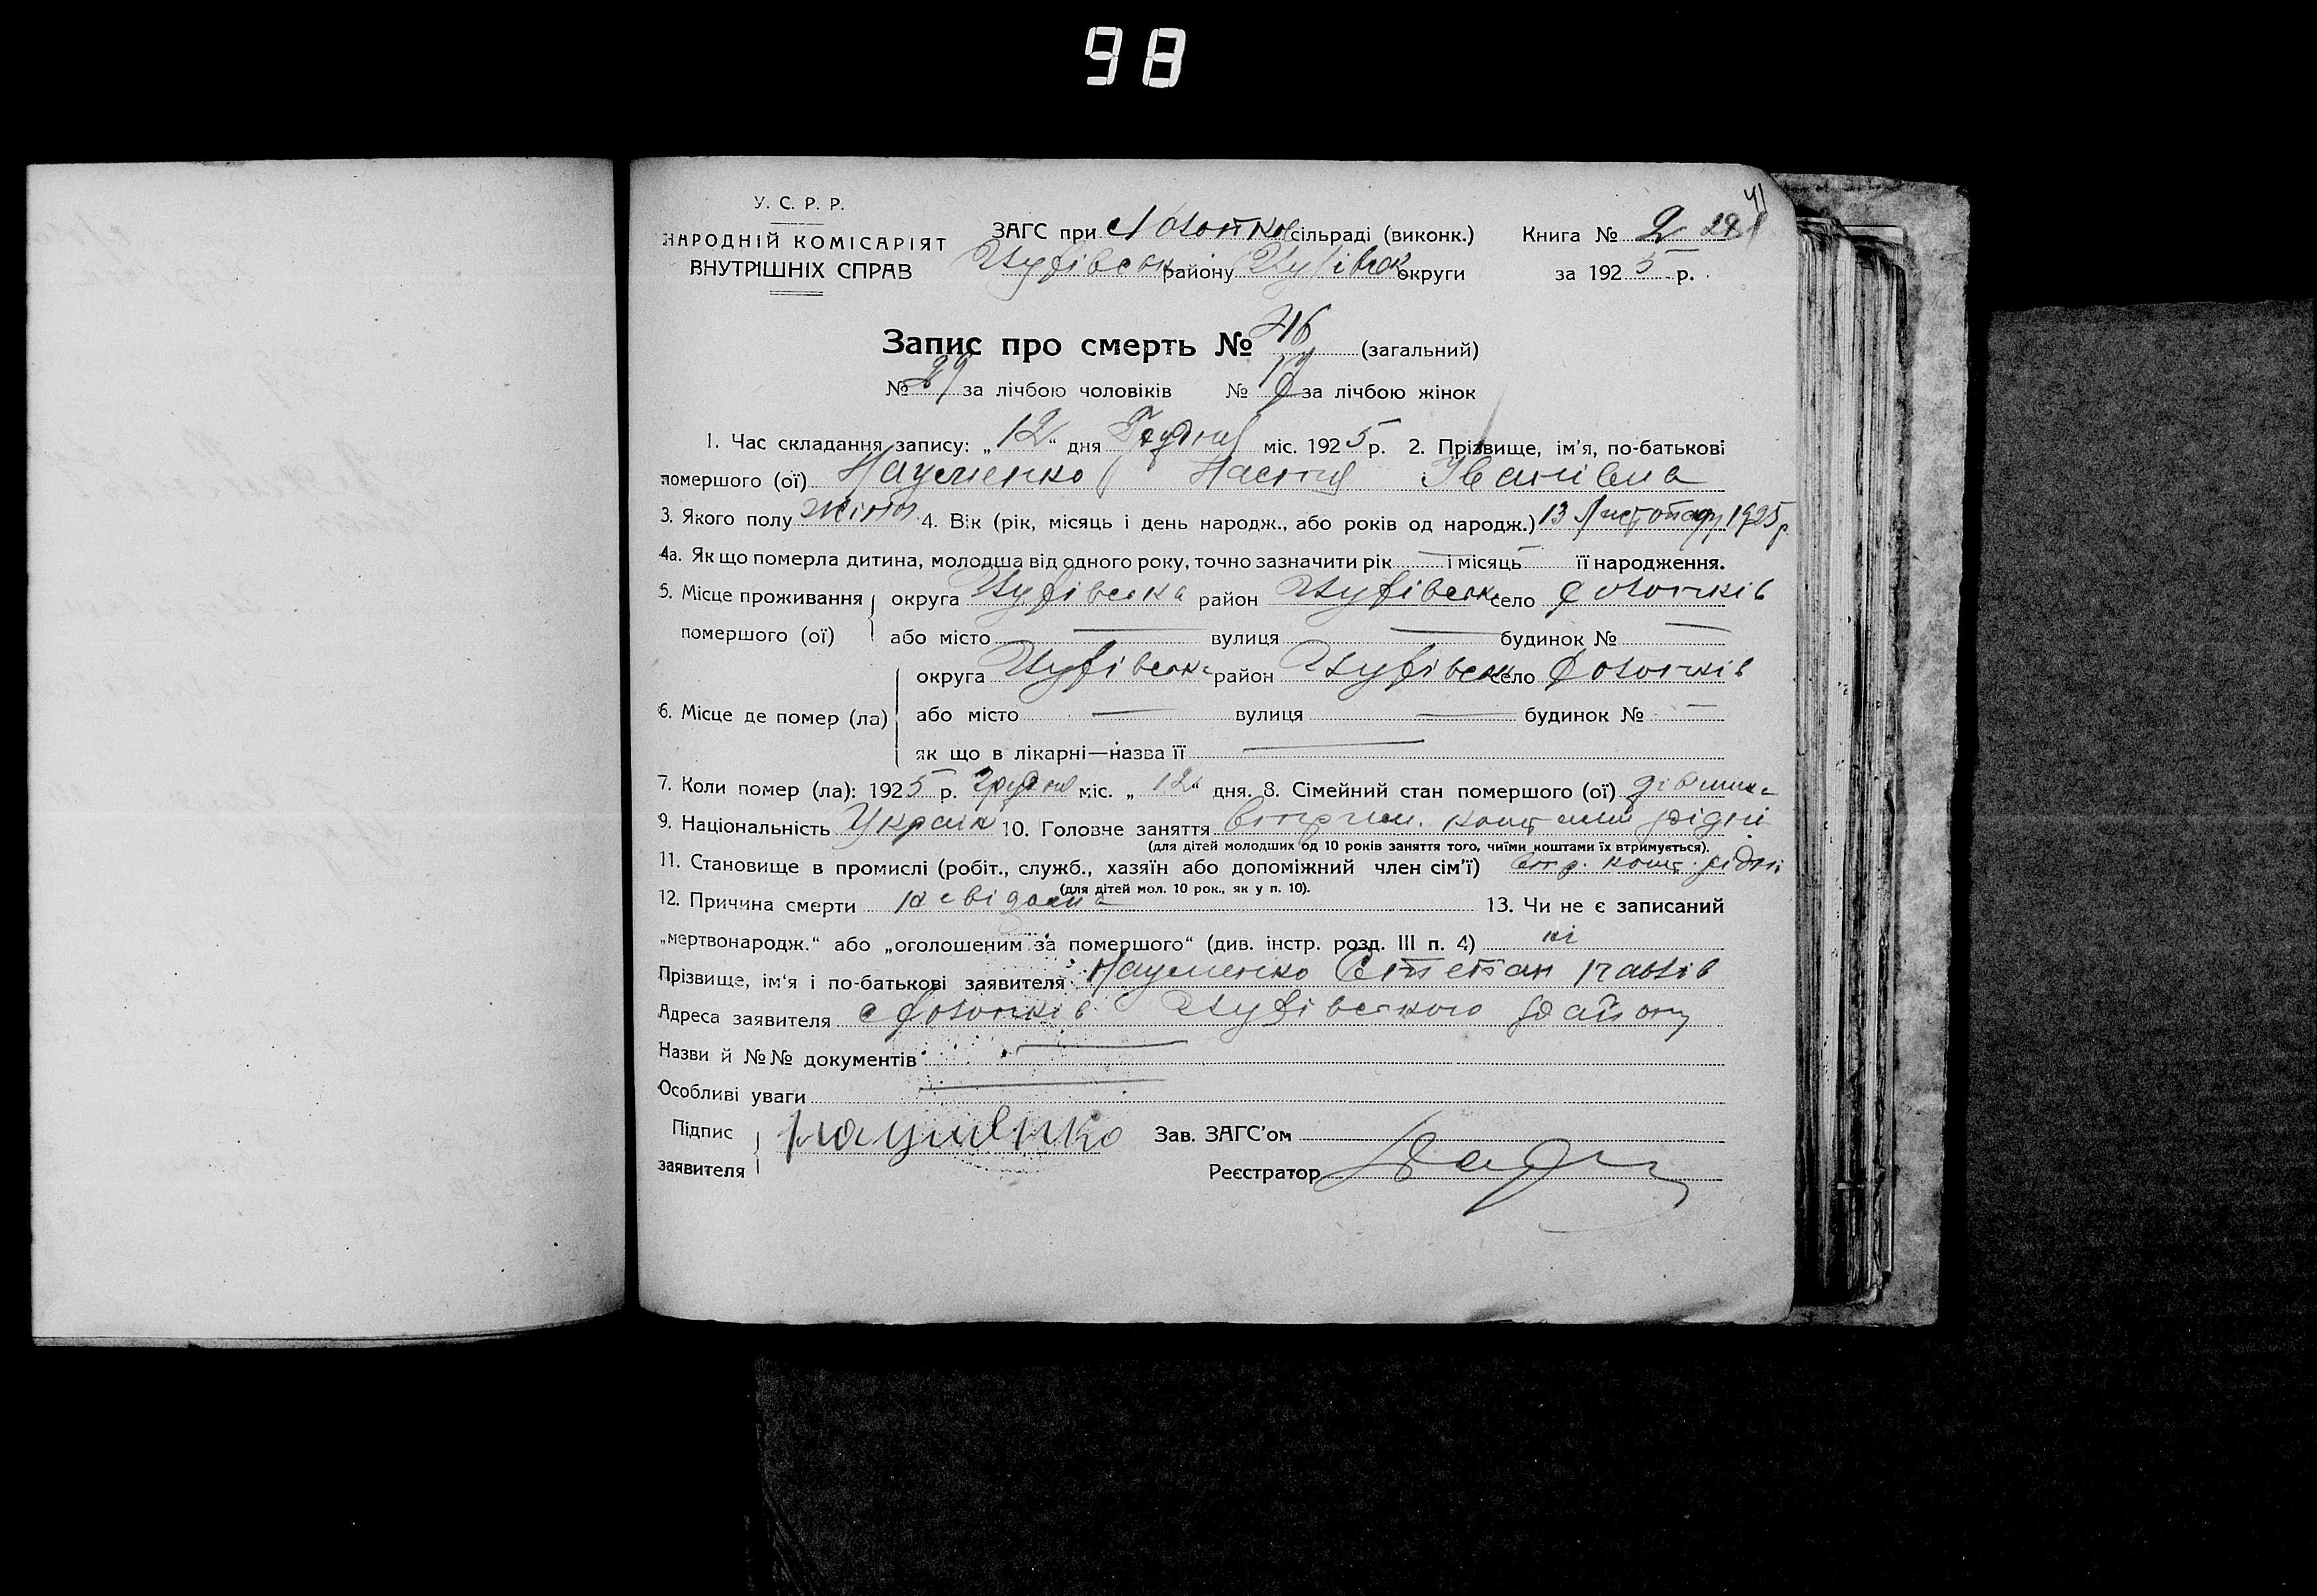 98
41
У. С. Р. Р.
НАРОДНІЙ КОМІСАРІЯТ
ВНУТРІШНІХ СПРАВ
ЗАГС при сільраді (виконк.) Книга № 2
району округи за 1925 р.
Запис про смерть № 46 (загальний)
№ 29 за лічбою чоловіків № за лічбою жінок
1. Час складання запису: „12“ дня Грудня міс. 1925 р. 2. Прізвище, ім'я, по-батькові
помершого (ої) Науменко Настя Іванівна
3. Якого полу жіноч. 4. Вік (рік, місяць і день народж., або років од народж.) 13 Листопаду 1925 р.
4а. Як що померла дитина, молодша від одного року, точно зазначити рік — і місяць — її народження.
5. Місце проживання округа район село
помершого (ої) або місто — вулиця — будинок № —
округа район село
6. Місце де помер (ла) або місто — вулиця — будинок № —
як що в лікарні—назва її —
7. Коли помер (ла): 1925 р. грудня міс. „12“ дня. 8. Сімейний стан помершого (ої) дівчина
9. Національність Україн 10. Головче заняття коштами рідні
(для дітей молодших од 10 років заняття того, чиїми коштами їх втримується).
11. Становище в промислі (робіт., служб., хазяїн або допоміжний член сім'ї) втр. кошт. рідні
(для дітей мол. 10 рок., як у п. 10).
12. Причина смерти 13. Чи не є записаний
„мертвонародж.“ або „оголошеним за помершого“ (див. інстр. розд. III п. 4) ні
Прізвище, ім'я і по-батькові заявителя Науменко Степан
Адреса заявителя с району
Назви й №№ документів —
Особливі уваги —
Підпис Науменко Зав. ЗАГС'ом
заявителя Реєстратор